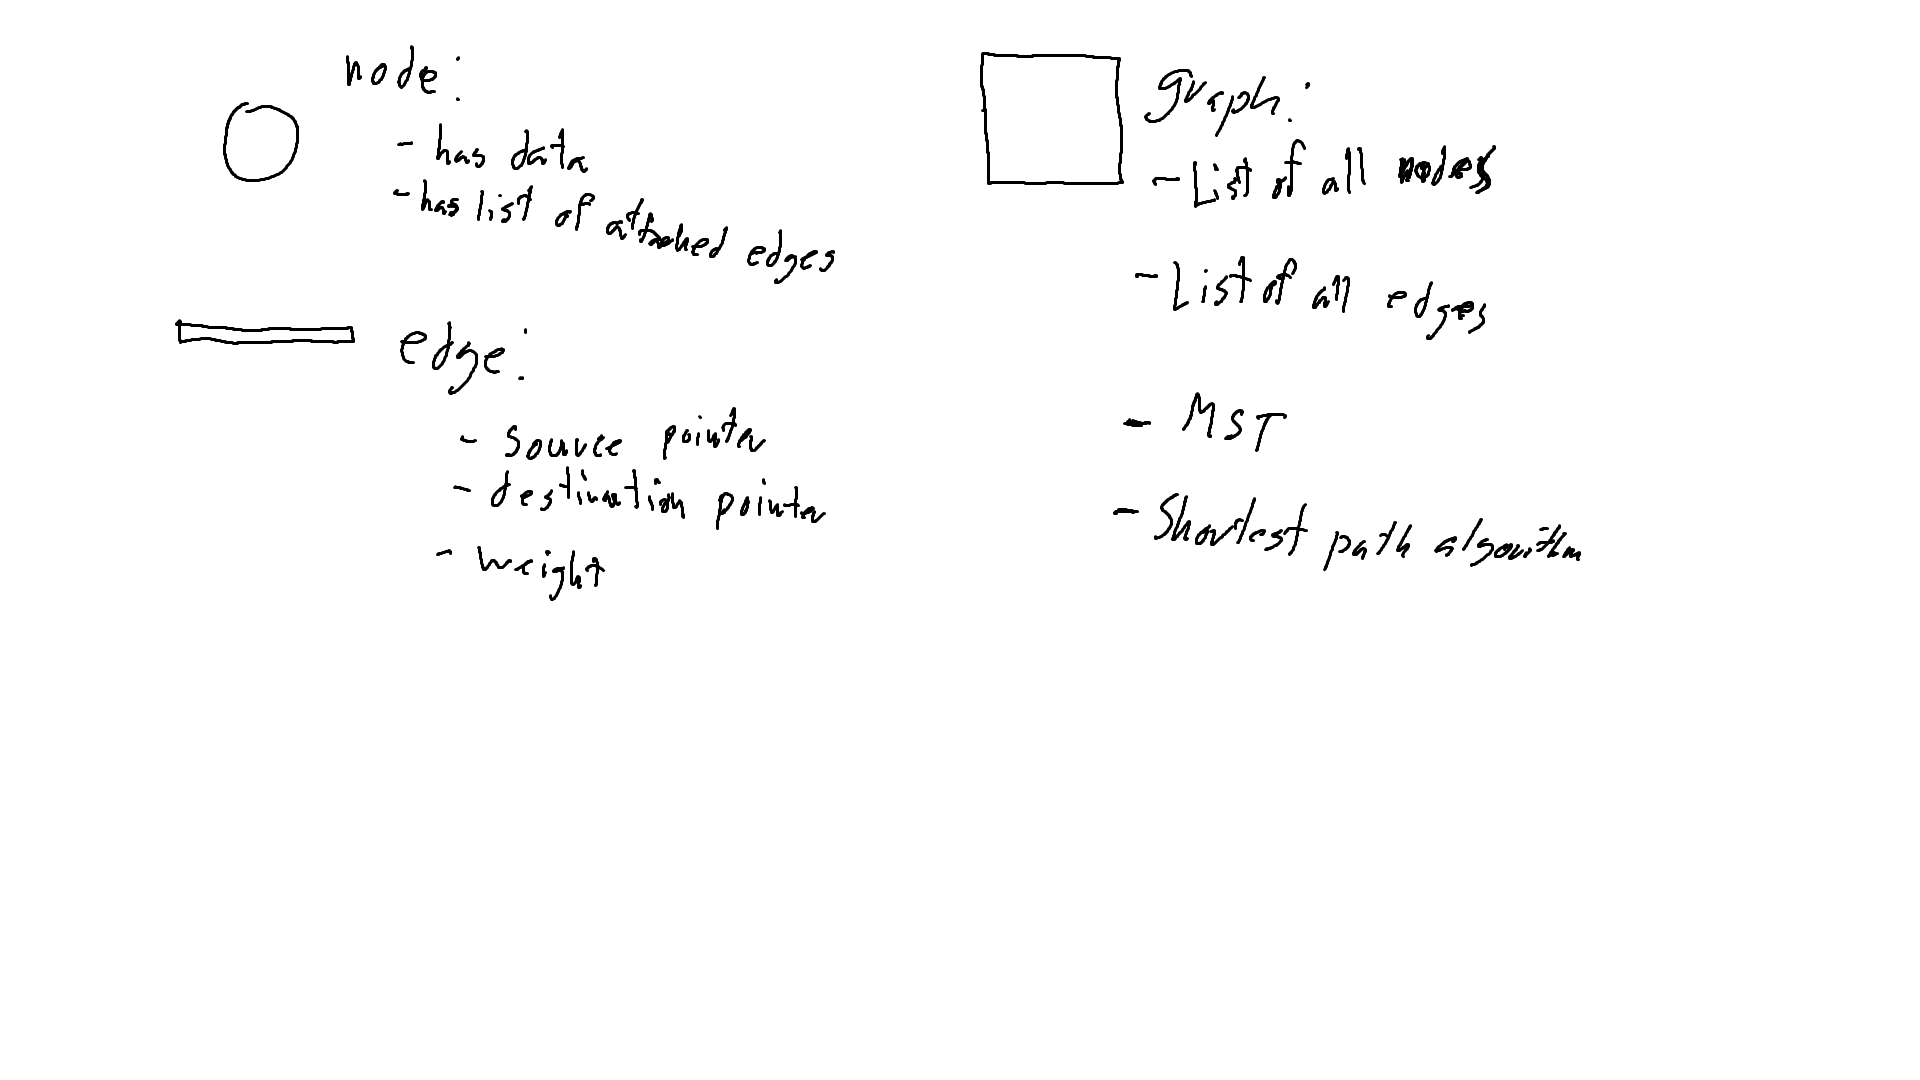 node:
- has data
- has list of attached edges
edge:
- source pointer
- destination pointer
- weight
graph:
- List of all nodes
- List of all edges
- MST
- Shortest path algorithm